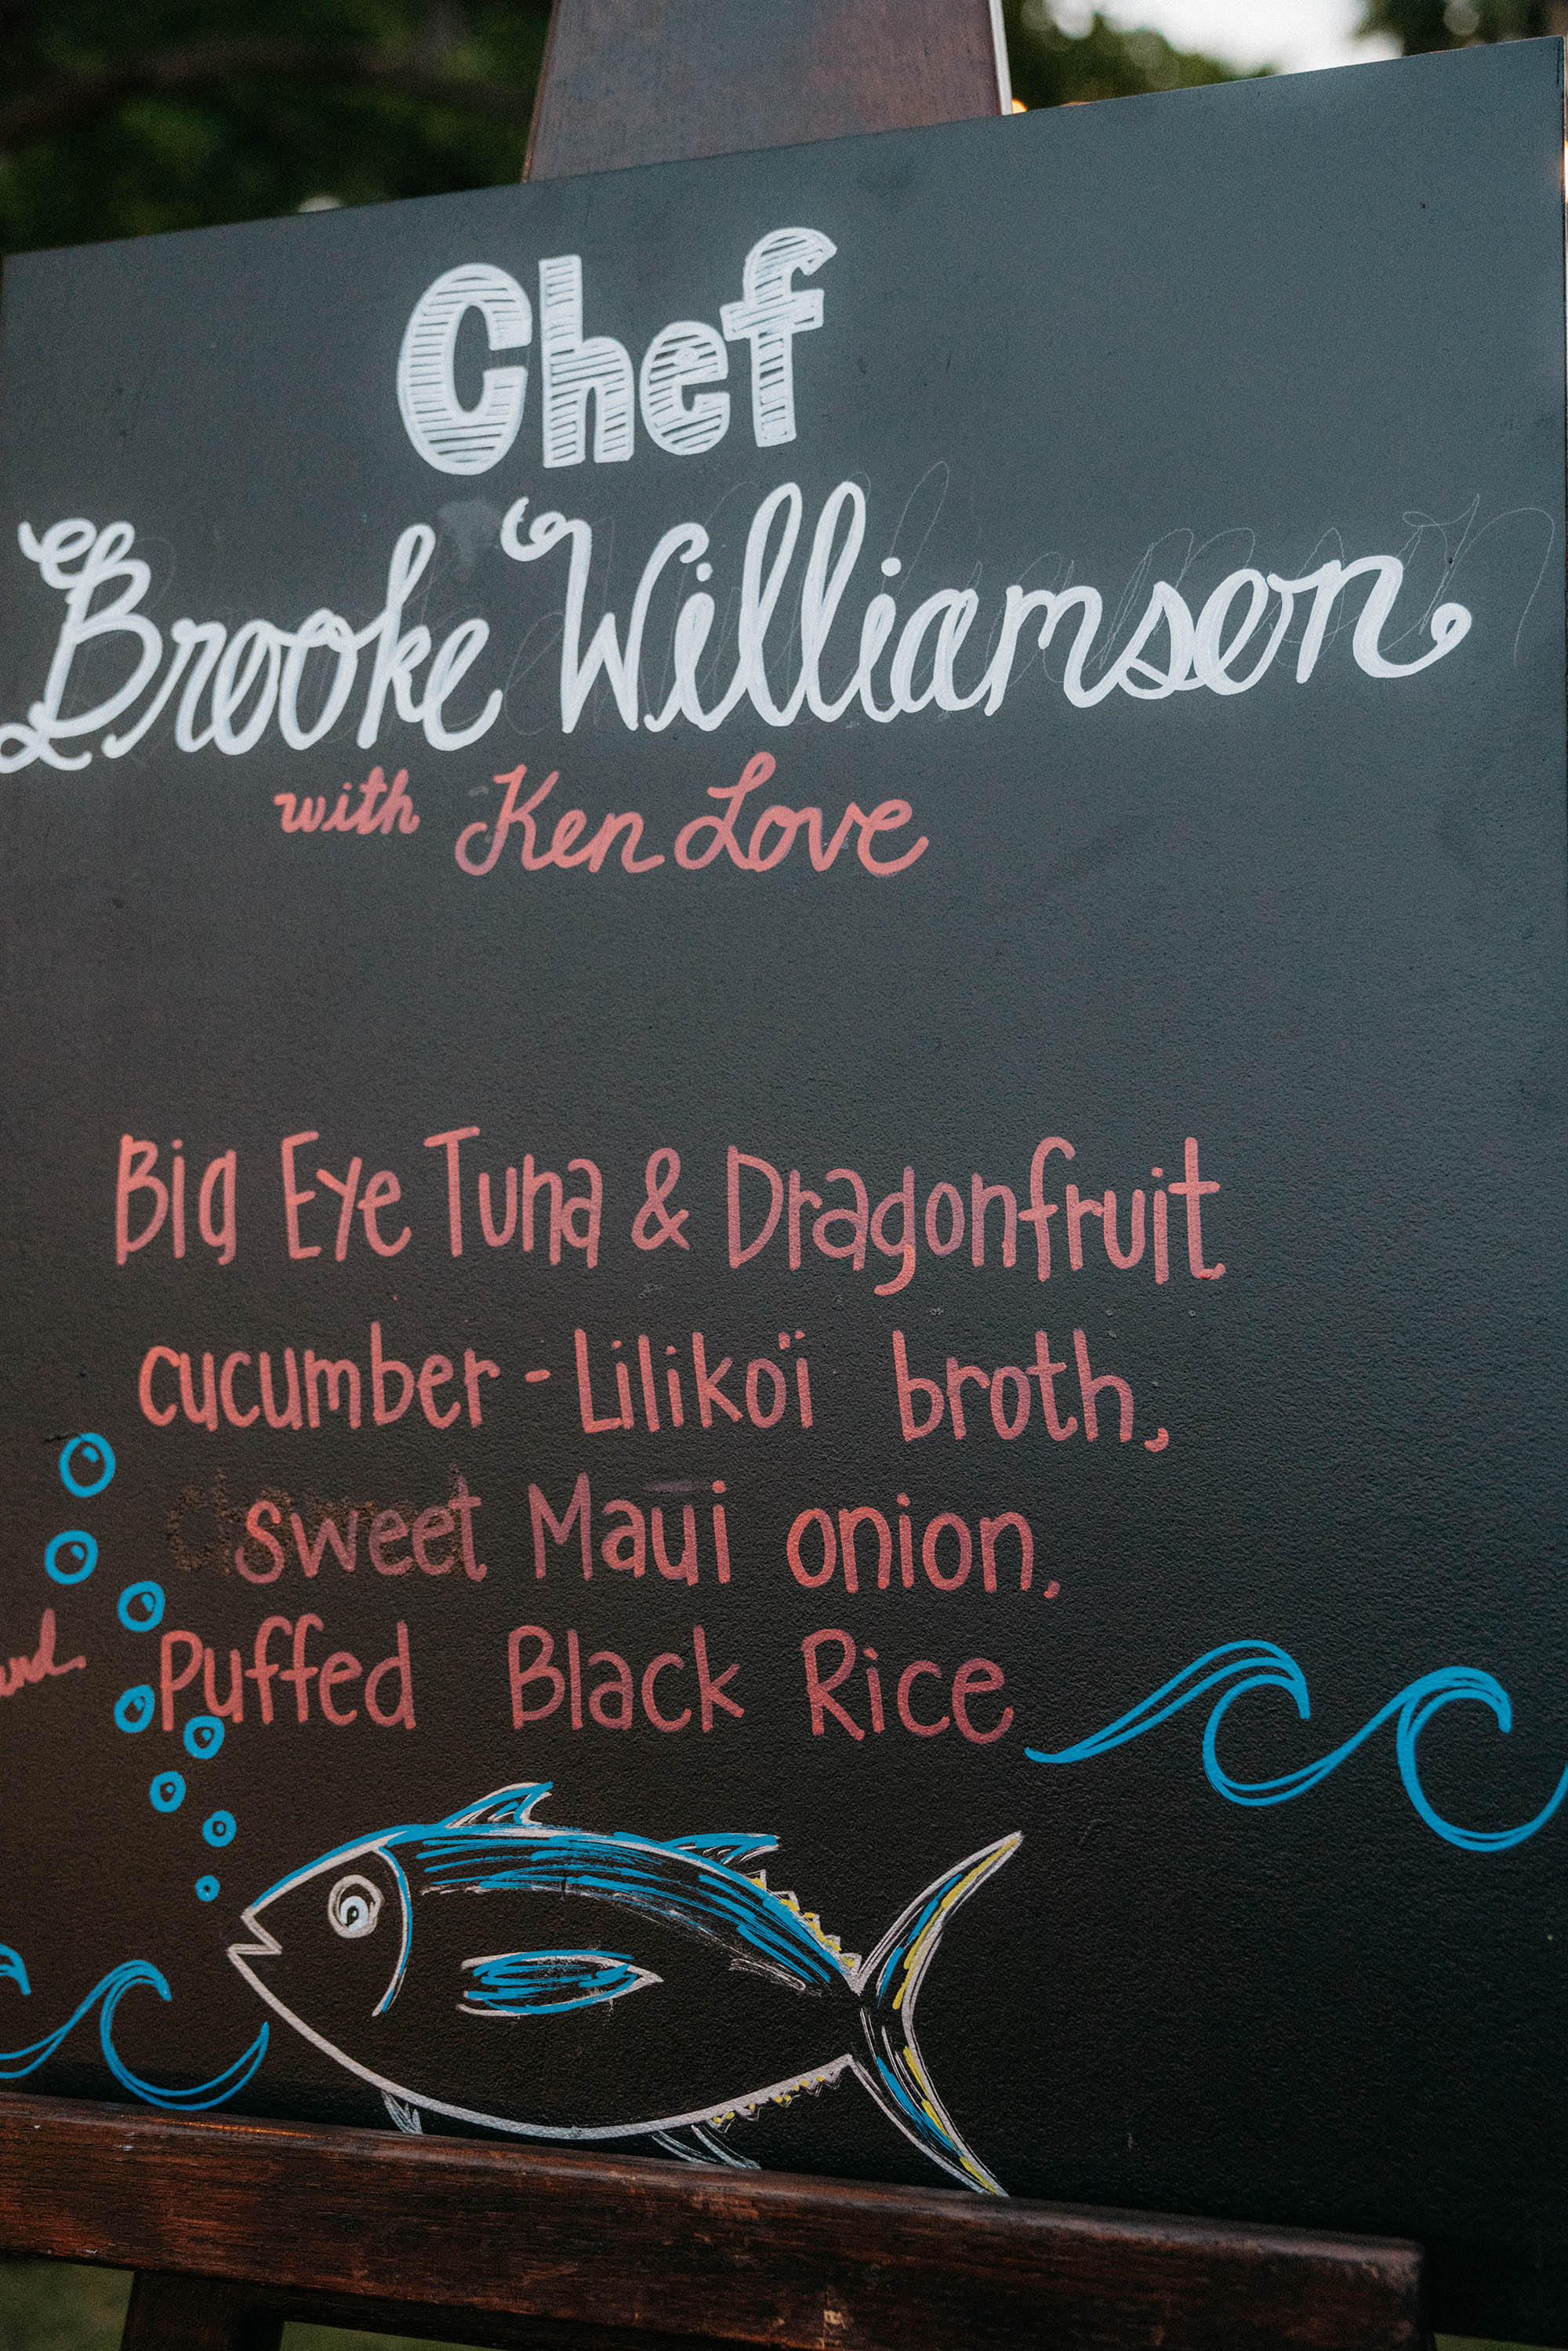 Chef
Brooke Williamson
with Ken Love
Big Eye Tuna & Dragonfruit
cucumber - Lilikoï broth,
sweet Maui onion,
Puffed Black Rice